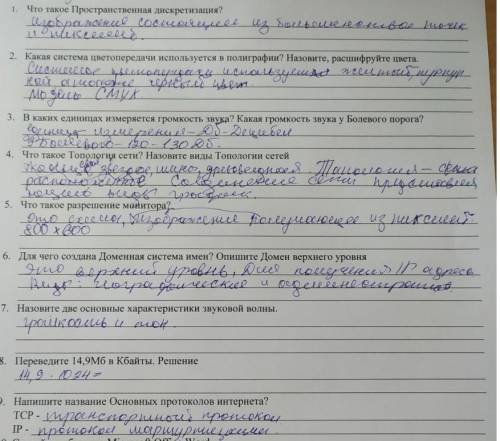 1. Что такое Пространственная дискретизация?
Изображение состоящее из точек
и пикселей.
2. Какая система цветопередачи используется в полиграфии? Назовите, расшифруйте цвета.
Система цветопередачи используется желтый,
а также черный цвет
CMYK
3. В каких единицах измеряется громкость звука? Какая громкость звука у Болевого порога?
Единицы измерения - Дб - Децибел
Болевого - 120 - 130 Дб.
4. Что такое Топология сети? Назовите виды Топологии сетей
звездой, шины, древовидная Топология - схема
расположения соединение сети
5. Что такое разрешение монитора?
Это схема, изображение из пикселей
800 x 600
6. Для чего создана Доменная система имен? Опишите Домен верхнего уровня
Это верхний уровень, Для получения IP адреса
Виды: географические и
7. Назовите две основные характеристики звуковой волны.
громкость и тон.
8. Переведите 14,9Мб в Кбайты. Решение
14,9 · 1024 =
9. Напишите название Основных протоколов интернета?
TCP - транспортный протокол
IP - протокол маршрутизации.